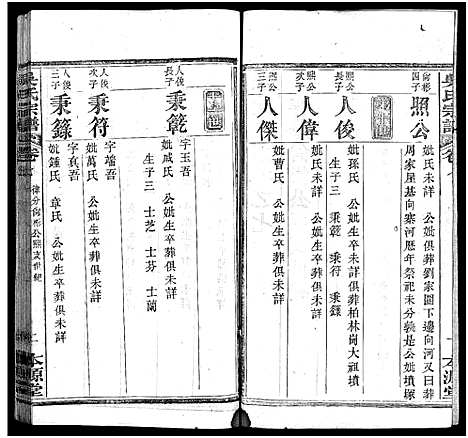 吳氏宗譜
卷
本源堂
向彬四子
照公
妣氏未詳 公妣俱葬劉家園下邊向河又曰葬
周家屋基向寒河歷年祭祀未分執是公妣墳塚
照公長子
人俊
妣孫氏 公妣生卒未詳俱葬柏林崗大祖墳
生子三 秉乾 秉符 秉籙
照公次子
人偉
照公三子
人傑
妣曹氏 公妣生卒葬俱未詳
人俊長子
秉乾
字玉吾
妣戚氏 公妣生卒葬俱未詳
生子三 士芝 士芬 士蘭
人俊次子
秉符
字端吾
妣萬氏 公妣生卒葬俱未詳
人俊三子
秉籙
字真吾
妣鍾氏 章氏 公妣生卒葬俱未詳
吳氏宗譜
卷
律分向彬公照支世紀
二
本源堂